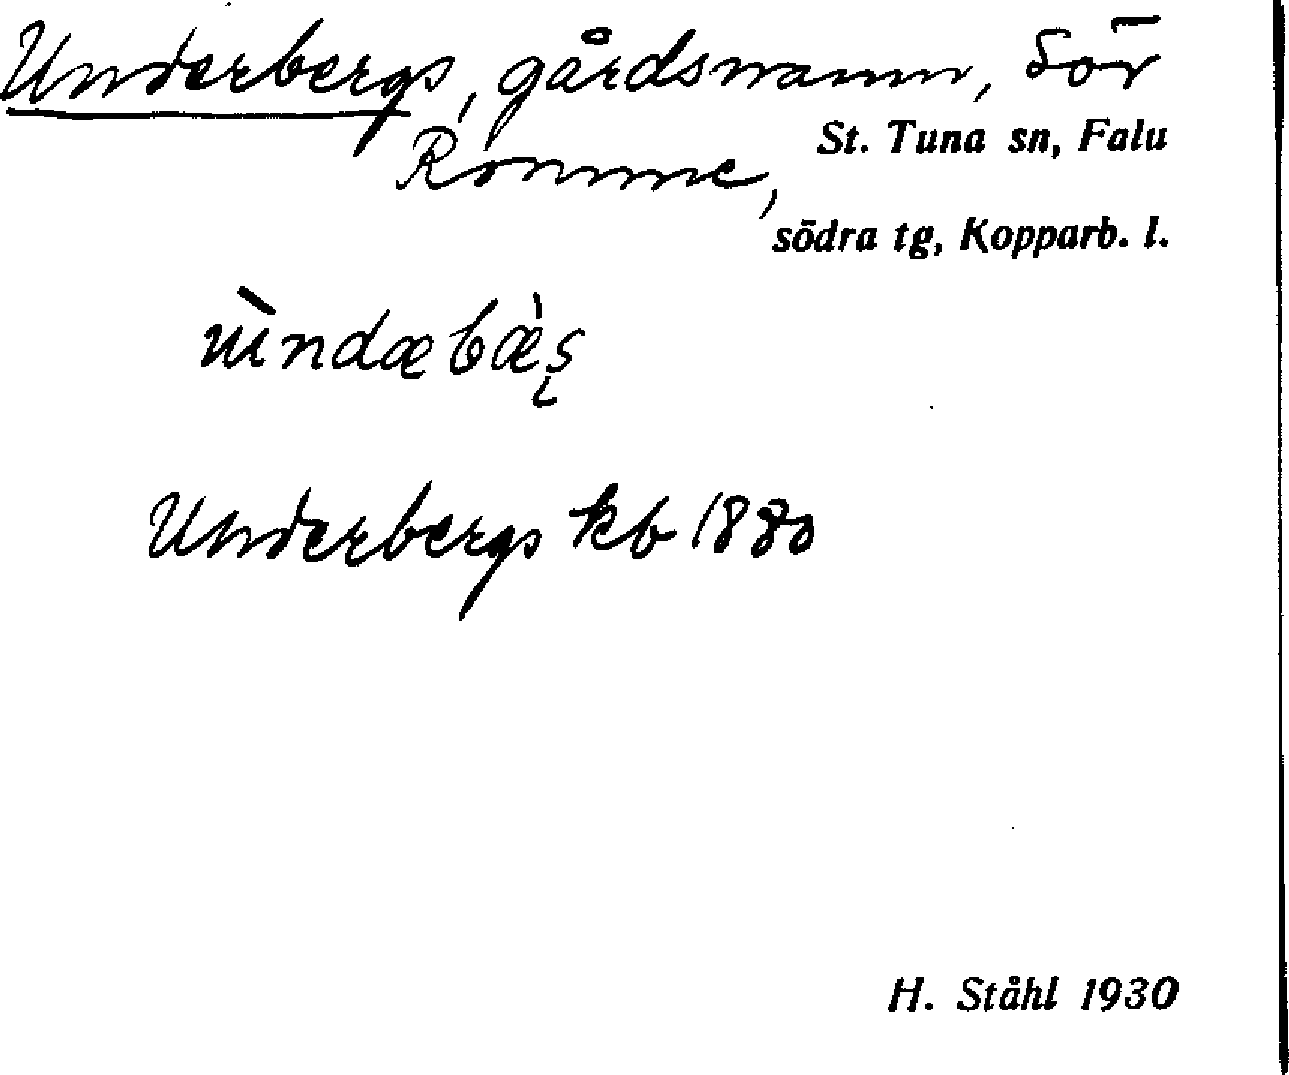 Underbergs, gårdsnamn, Sör
St. Tuna sn, Falu
Romme,
södra tg, Kopparb. l.
ùndæbæ̀ş
Underbergs kb 1880
H. Ståhl 1930